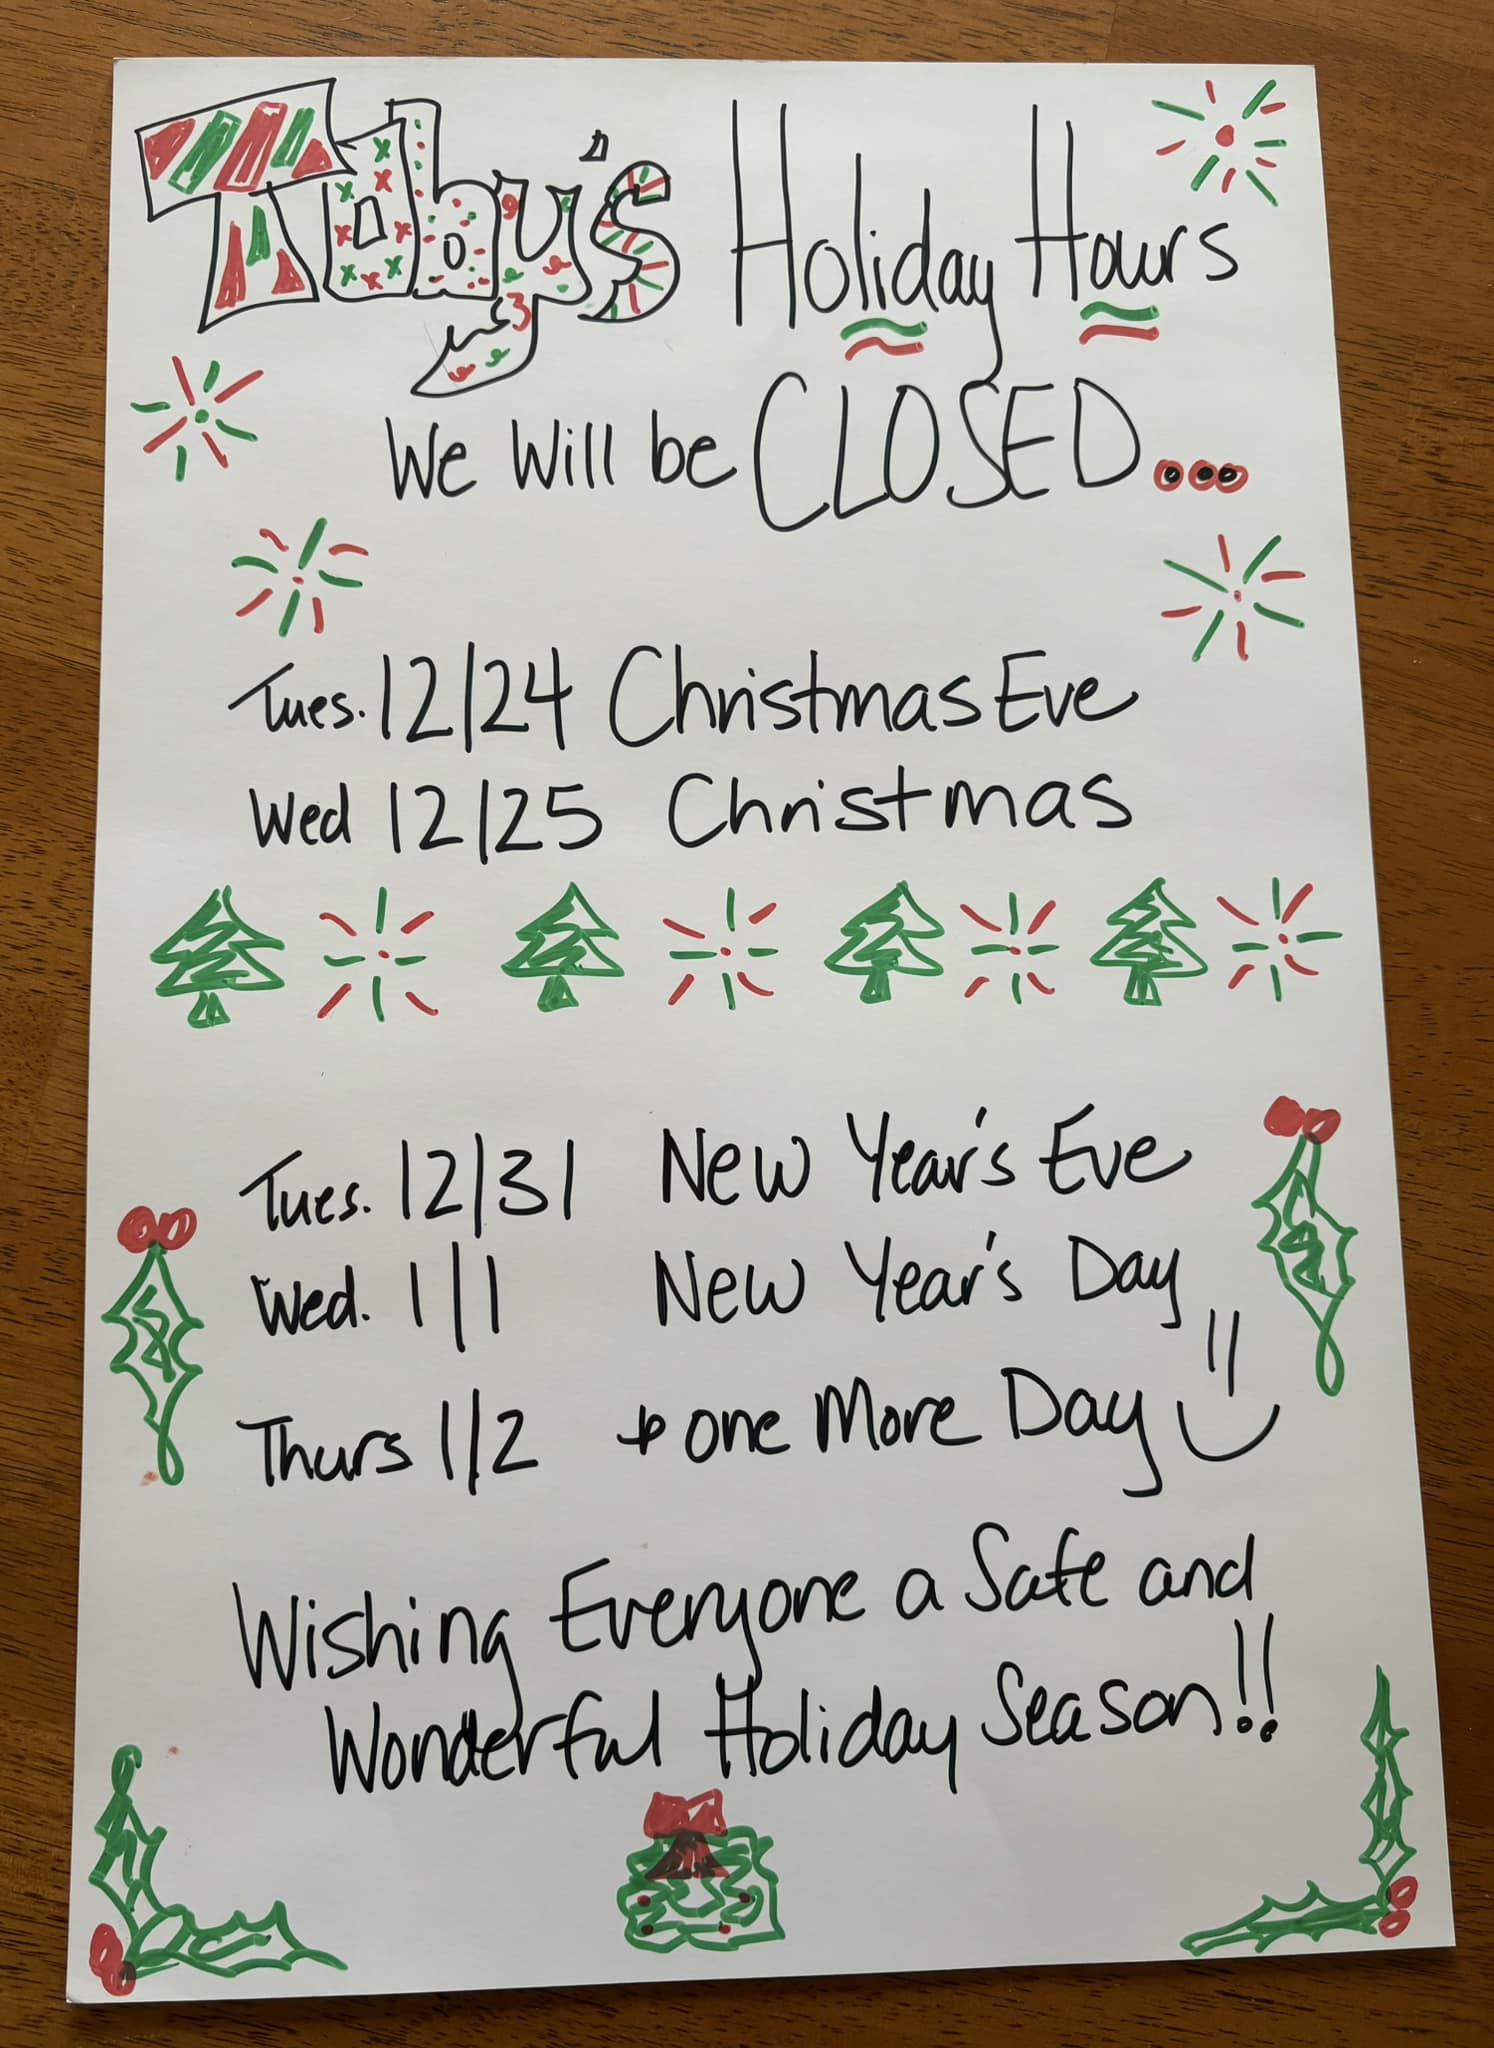 Toby's Holiday Hours
We Will be CLOSED...
Tues. 12/24 Christmas Eve
Wed 12/25 Christmas
Tues. 12/31 New Year's Eve
Wed. 1/1 New Year's Day
Thurs 1/2 + one More Day
Wishing Everyone a Safe and
Wonderful Holiday Season!!